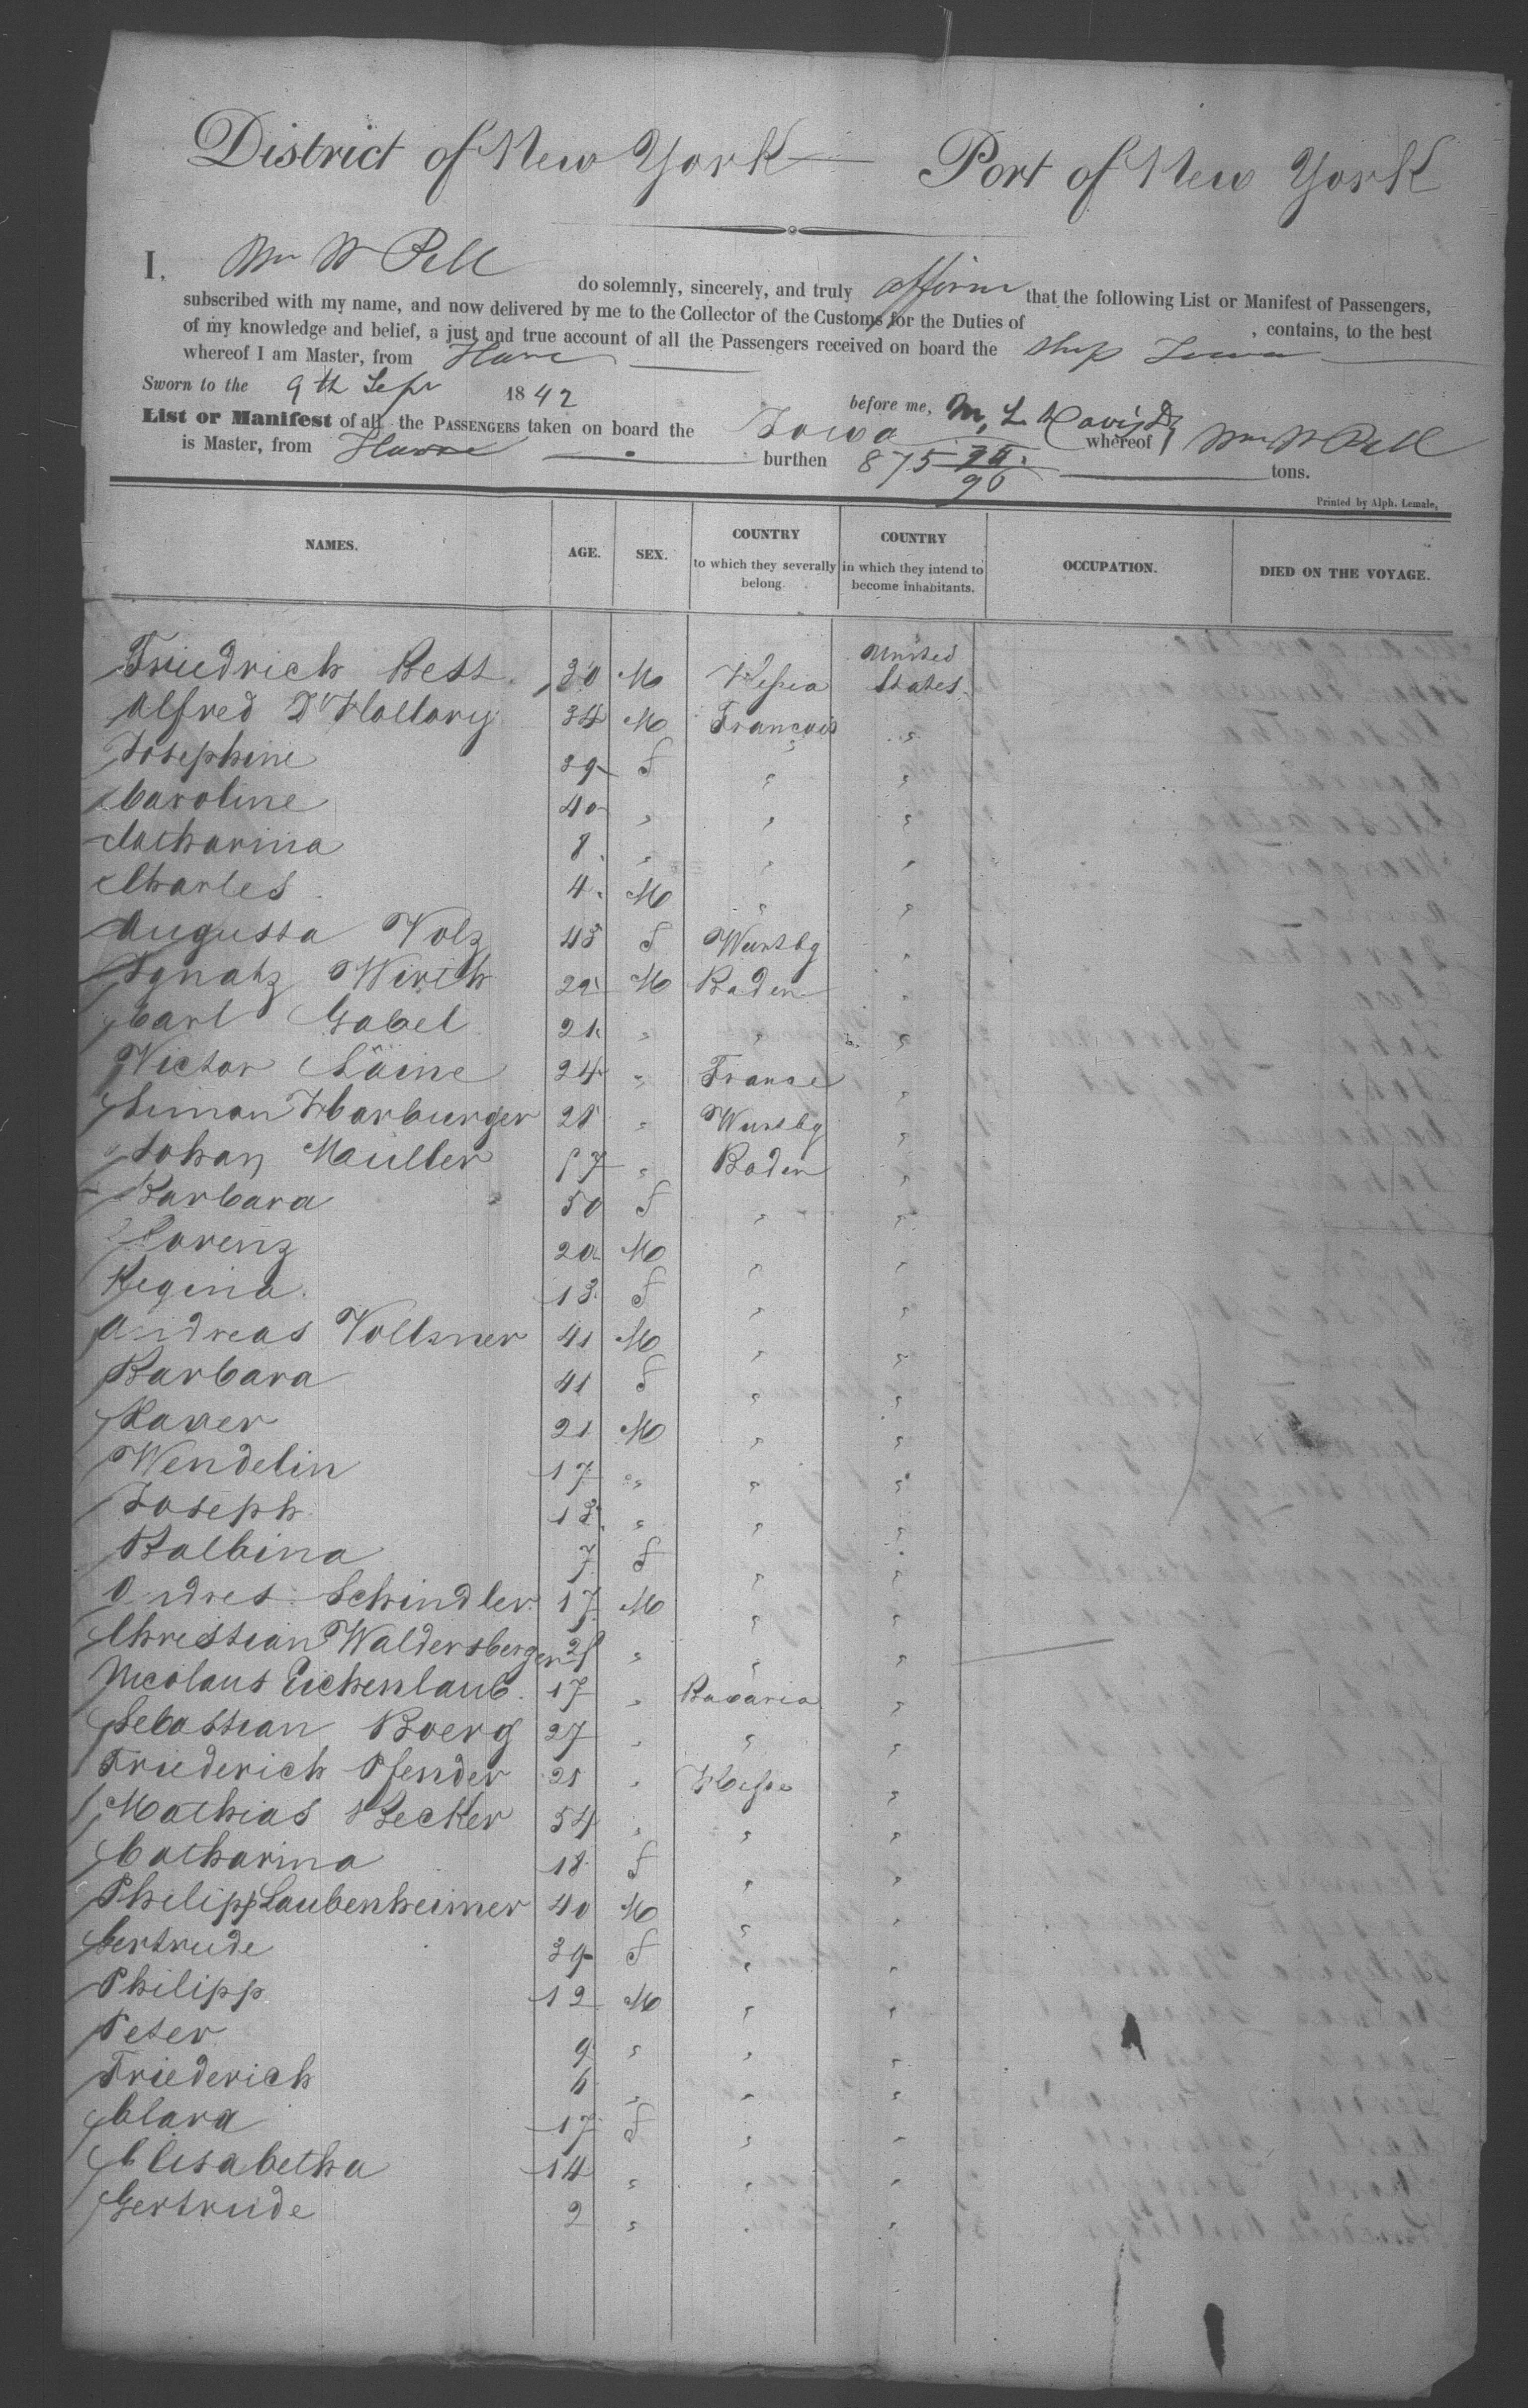 District of New York Port of New York
I, Wm W Pell do solemnly, sincerely, and truly affirm that the following List or Manifest of Passengers,
subscribed with my name, and now delivered by me to the Collector of the Customs for the Duties of , contains, to the best
of my knowledge and belief, a just and true account of all the Passengers received on board the Ship Iowa
whereof I am Master, from Havre
Sworn to the 9th Sepr 1842 before me, M. L. Davis
List or Manifest of all the PASSENGERS taken on board the Iowa whereof Wm W Pell
is Master, from Havre burthen 875 tons.
Printed by Alph. Lemale,
NAMES. AGE. SEX. COUNTRY to which they severally belong. COUNTRY in which they intend to become inhabitants. OCCUPATION. DIED ON THE VOYAGE.
Friedrich Best 30 M Hessia United States
Alfred D'Hallory 34 M Francois "
Josephine 39 f " "
Caroline 40 " " "
Catharina 8 " " "
Charles 4 M " "
Augusta Volz 43 f Wurtbg "
Ignatz Wirth 29 M Baden "
Carl Gabel 21 " " "
Victor 24 " France "
Simon Harburger 28 " Wurtbg "
Johan Müller 57 " Baden "
Barbara 50 f " "
Lorenz 20 M " "
Regina 13 f " "
Andreas Vollmer 41 M " "
Barbara 41 f " "
Xaver 21 M " "
Wendelin 17 " " "
Joseph 13 " " "
Balbina 7 f " "
Andres Schindler 17 M " "
Christian Waldersberger 28 " " "
Nicolaus Eichenlaub 17 " Bavaria "
Sebastian Boerg 27 " " "
Friederich Pfender 21 " Hesse "
Mathias Becker 54 " " "
Catharina 18 f " "
Philipp Laubenheimer 40 M " "
Gertrude 39 f " "
Philipp 12 M " "
Peter 9 " " "
Friederich 6 " " "
Clara 17 f " "
Elisabetha 14 " " "
Gertrude 2 " " "